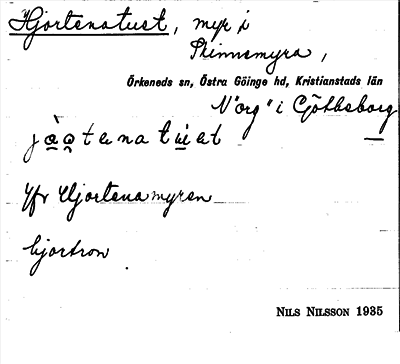 Hjortenatuet, myr i
Skinnsmyra,
Örkeneds sn, Östra Göinge hd, Kristianstads län
N"org" i Göteborg
Jfr Hjortenamyren
hjortron
NILS NILSSON 1935